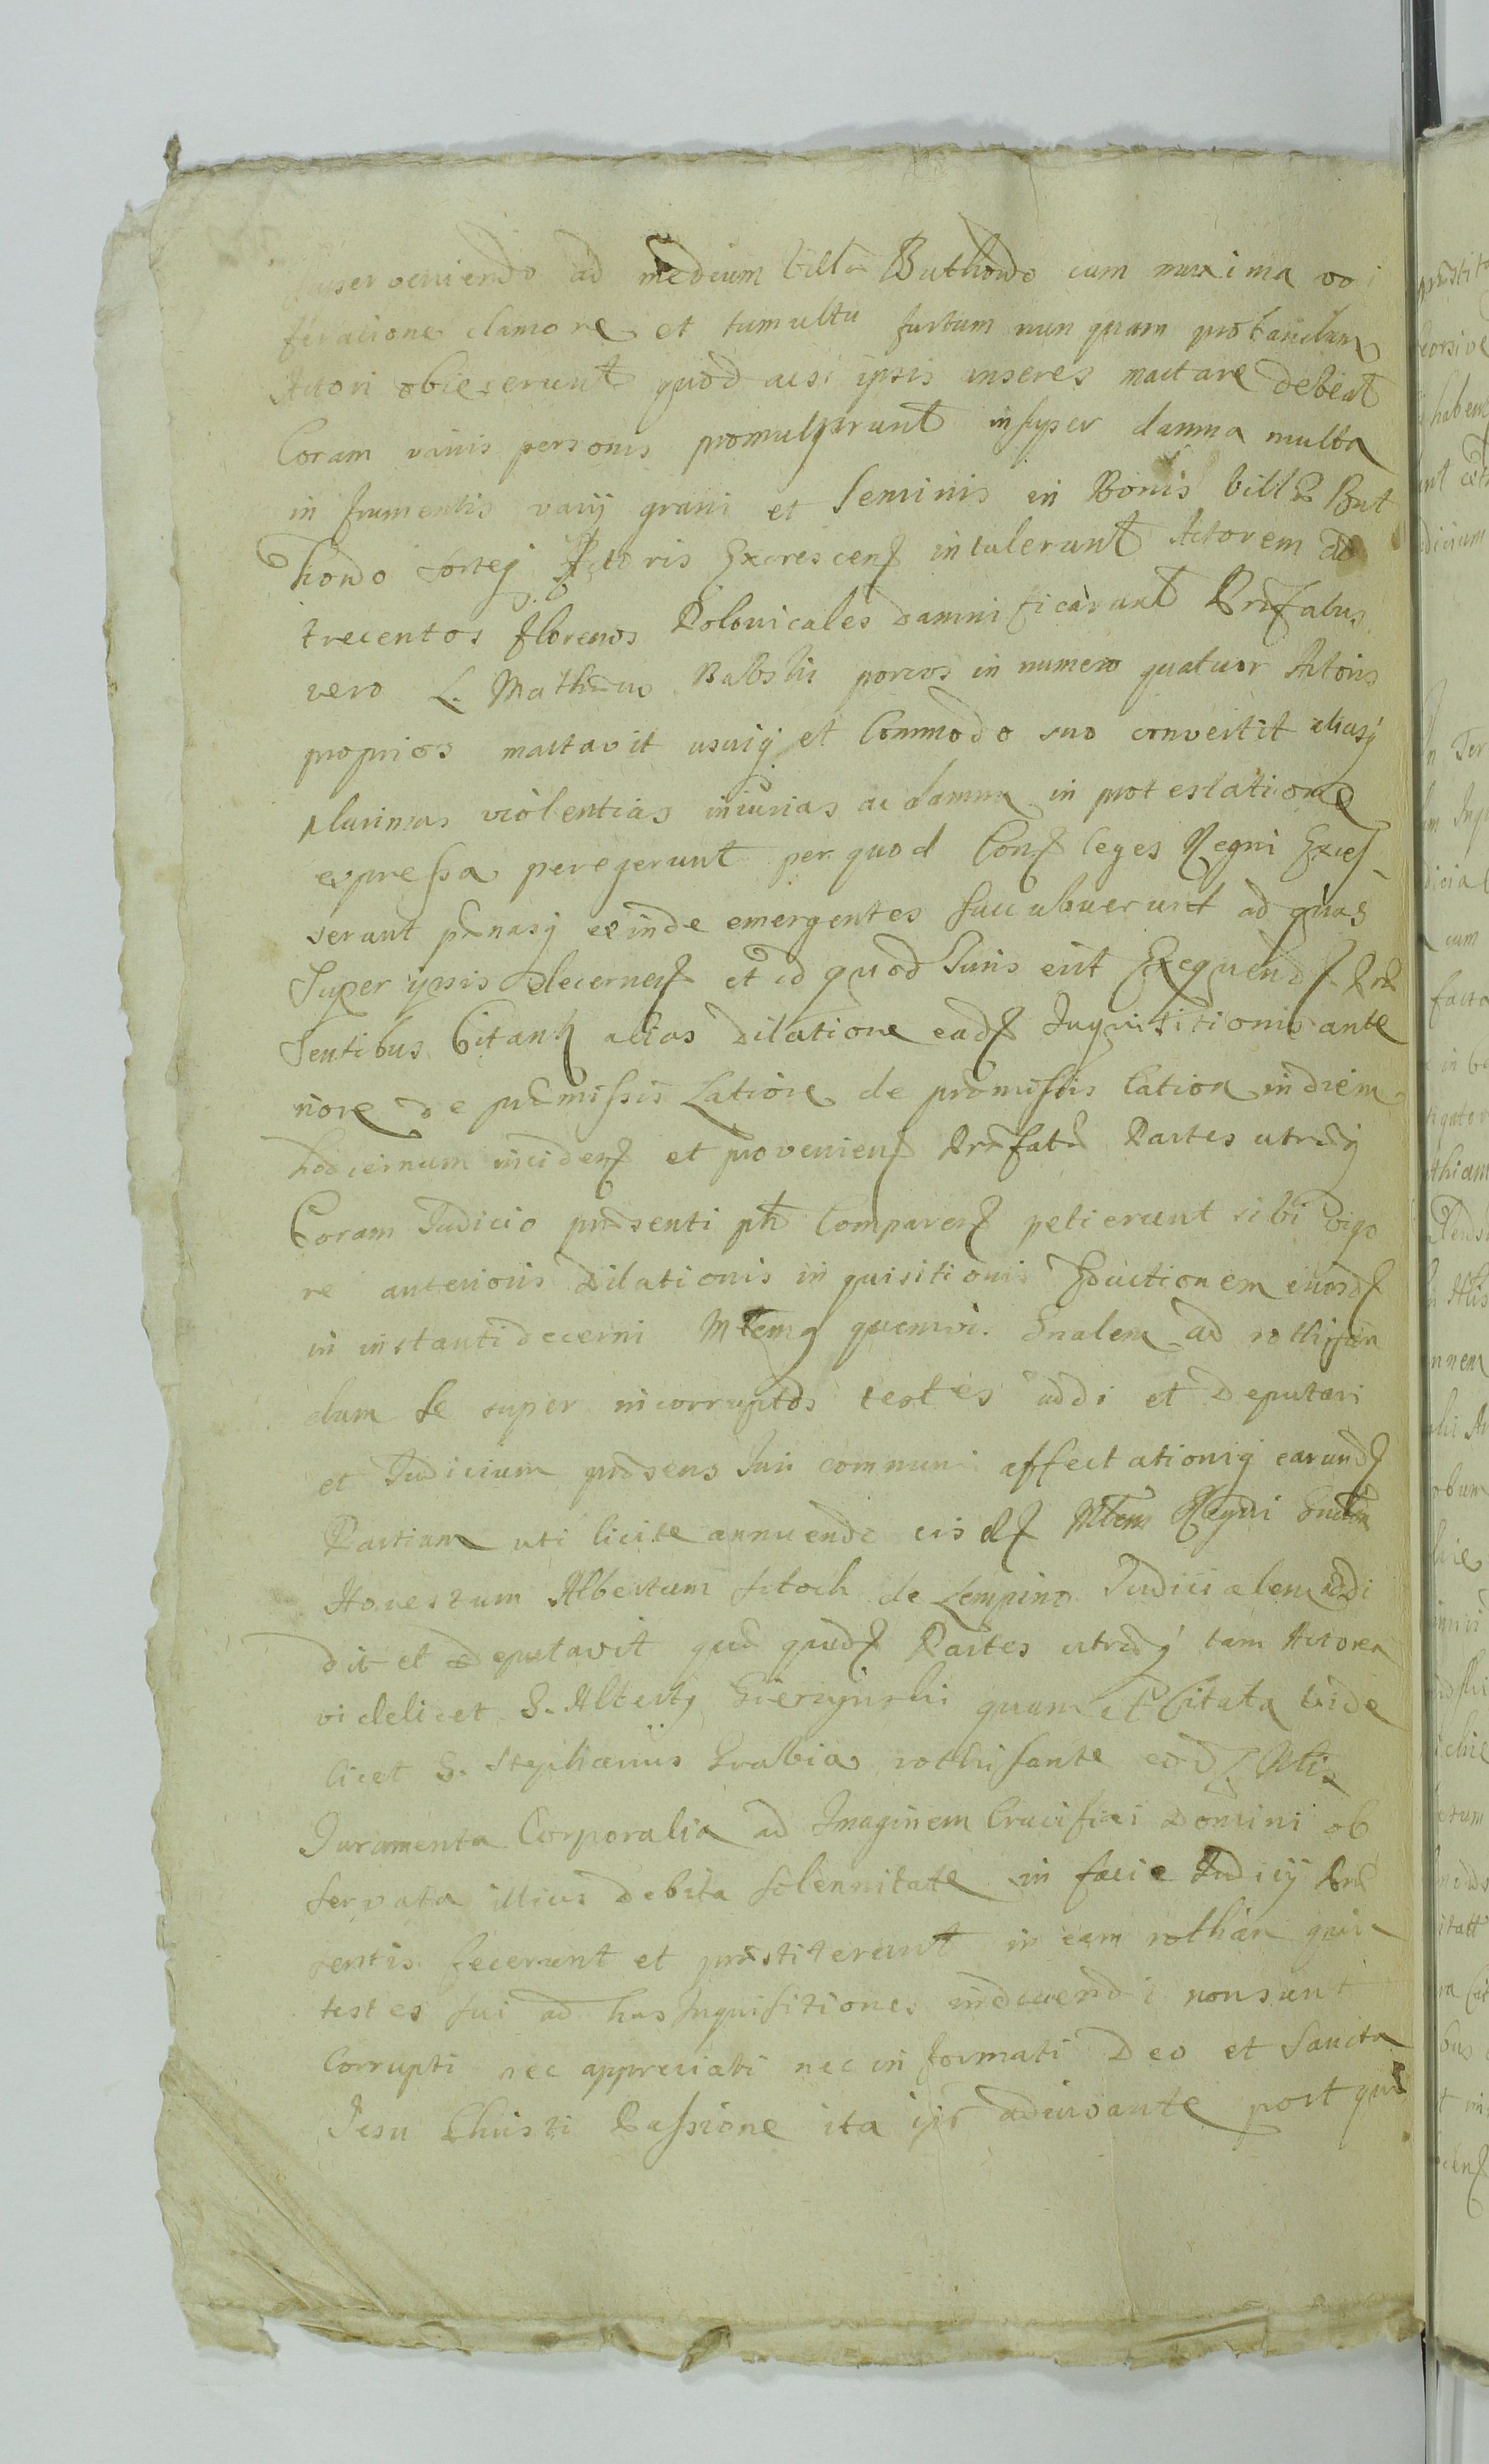 perveniendo ad medium villæ Buthowo cum maxima voci
feratione clamore et tumultu furtum nun quam probandum
Actori obiecerunt quod acsi ipsis anseres mactare debeat
Coram variis personis promulgarunt insuper damna multa
in frumentis varij grani et seminis in Bonis villæ But
howo sorteq Actoris Excrescen intulerunt Actorem ad
trecentos florenos Polonicales damnificarunt Præfatus
vero G. Mathæus Babski porcos in numero quatuor Actoris
proprios mactavit usuiq et Commodo suo convertit aliasq
plurimas violentias iniurias ac damna in protestatione
expressa peregerunt per quod Con leges Regni Exces
serunt pœnasq exinde emergentes succubuerunt ad quas
super ipsis decernen et id quod Iuris erit Exequend Præ
sentibus Citant alias dilatione ead Inquisitionis ante
riore de præmissis Latione de præmissis lation in diem
hodiernum inciden et provenien Præfatæ Partes utræq
Coram Iudicio præsenti pth Comparen petierunt sibi vigo
re anterioris Dilationis inquisitionis Eductionem eiusd
in instanti decerni Mtemq quemvi. Gnalem ad rothisan
dum se super incorruptos testes addi et Deputari
et Iudicium præsens Iuri communi affectationiq earund
Partium uti licite annuendo eisd Mtem Regni Gnalem
Honestum Albertum Ptoch de Lempino Iudicialem addi
dit et Deputavit quo quid Partes utræq tam Actorea
videlicet G. Albertq Gierzynski quam et Citata vide
licet G. Stephanus Grabia rothisante eod Mtli
Iuramenta Corporalia ad Imaginem Crucifixi Domini ob
servata illius debita solennitate in facie Iudicij Præ
sentis fecerunt et præstiterunt in eam rotham quia
testes sui ad has Inquisitiones inducendi non sunt
Corrupti nec appreciati nec informati Deo et Sancta
Iesu Christi Passione ita ips adiuvante post quæ